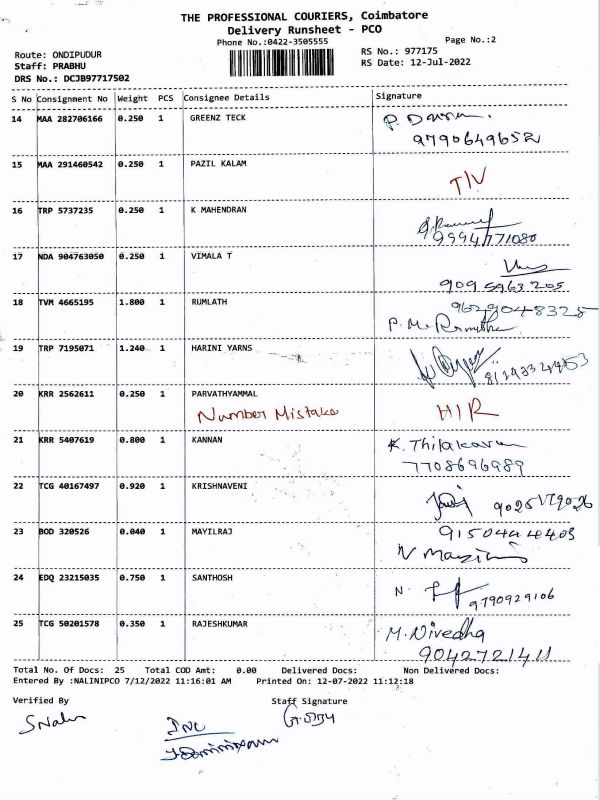 THE PROFESSIONAL COURIERS, Coimbatore
Delivery Runsheet - PCO
Phone No.:0422-3505555
Page No.:2
Route: ONDIPUDUR
RS No.: 977175
Staff: PRABHU
RS Date: 12-Jul-2022
DRS No.: DCJB97717502
S No Consignment No Weight PCS Consignee Details Signature
14 MAA 282706166 0.250 1 GREENZ TECK
9790649652
15 MAA 291460542 0.250 1 PAZIL KALAM
T/V
16 TRP 5737235 0.250 1 K MAHENDRAN
9994771080
17 NDA 904763050 0.250 1 VIMALA T
9095963205
18 TVM 4665195 1.800 1 RUMLATH
9629048325
19 TRP 7195071 1.240 1 HARINI YARNS
20 KRR 2562611 0.250 1 PARVATHYAMMAL
Number Mistake
21 KRR 5407619 0.800 1 KANNAN
K. Thilakavan
7708696989
22 TCG 40167497 0.920 1 KRISHNAVENI
23 BOD 320526 0.040 1 MAYILRAJ
9150444403
24 EDQ 23215035 0.750 1 SANTHOSH
9790929106
25 TCG 50201578 0.350 1 RAJESHKUMAR
M. Nivedha
9042721411
Total No. Of Docs: 25 Total COD Amt: 0.00 Delivered Docs: Non Delivered Docs:
Entered By :NALINIPCO 7/12/2022 11:16:01 AM Printed On: 12-07-2022 11:12:18
Verified By
Staff Signature